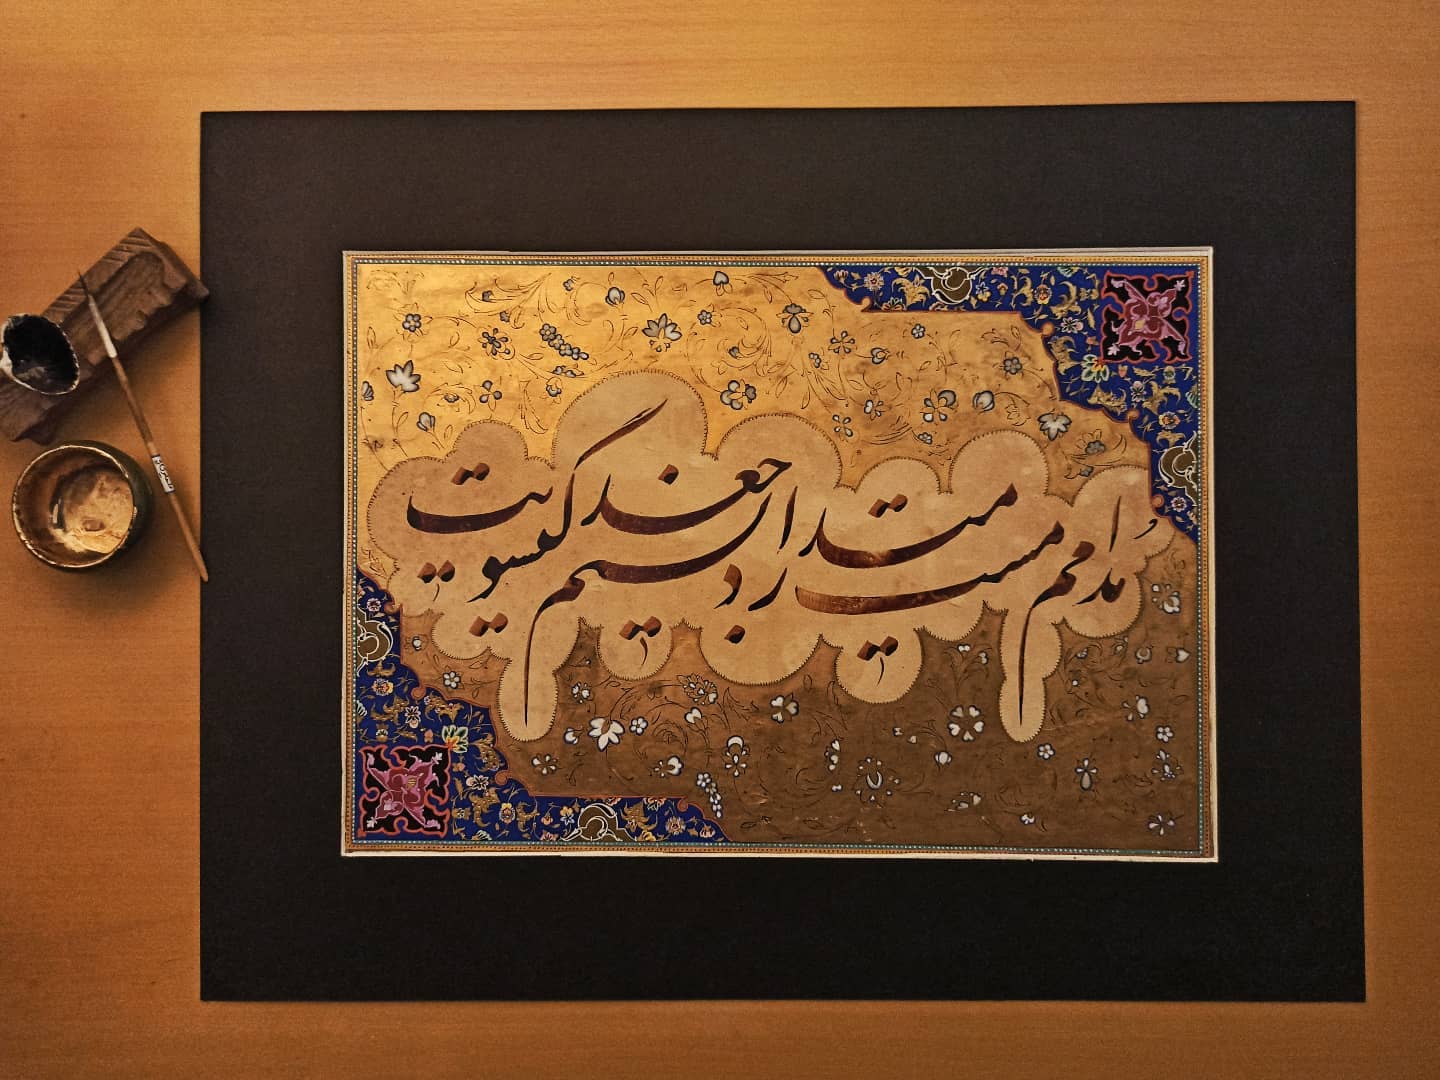 مُدامم مست میدارد نسیم جعد گیسویت